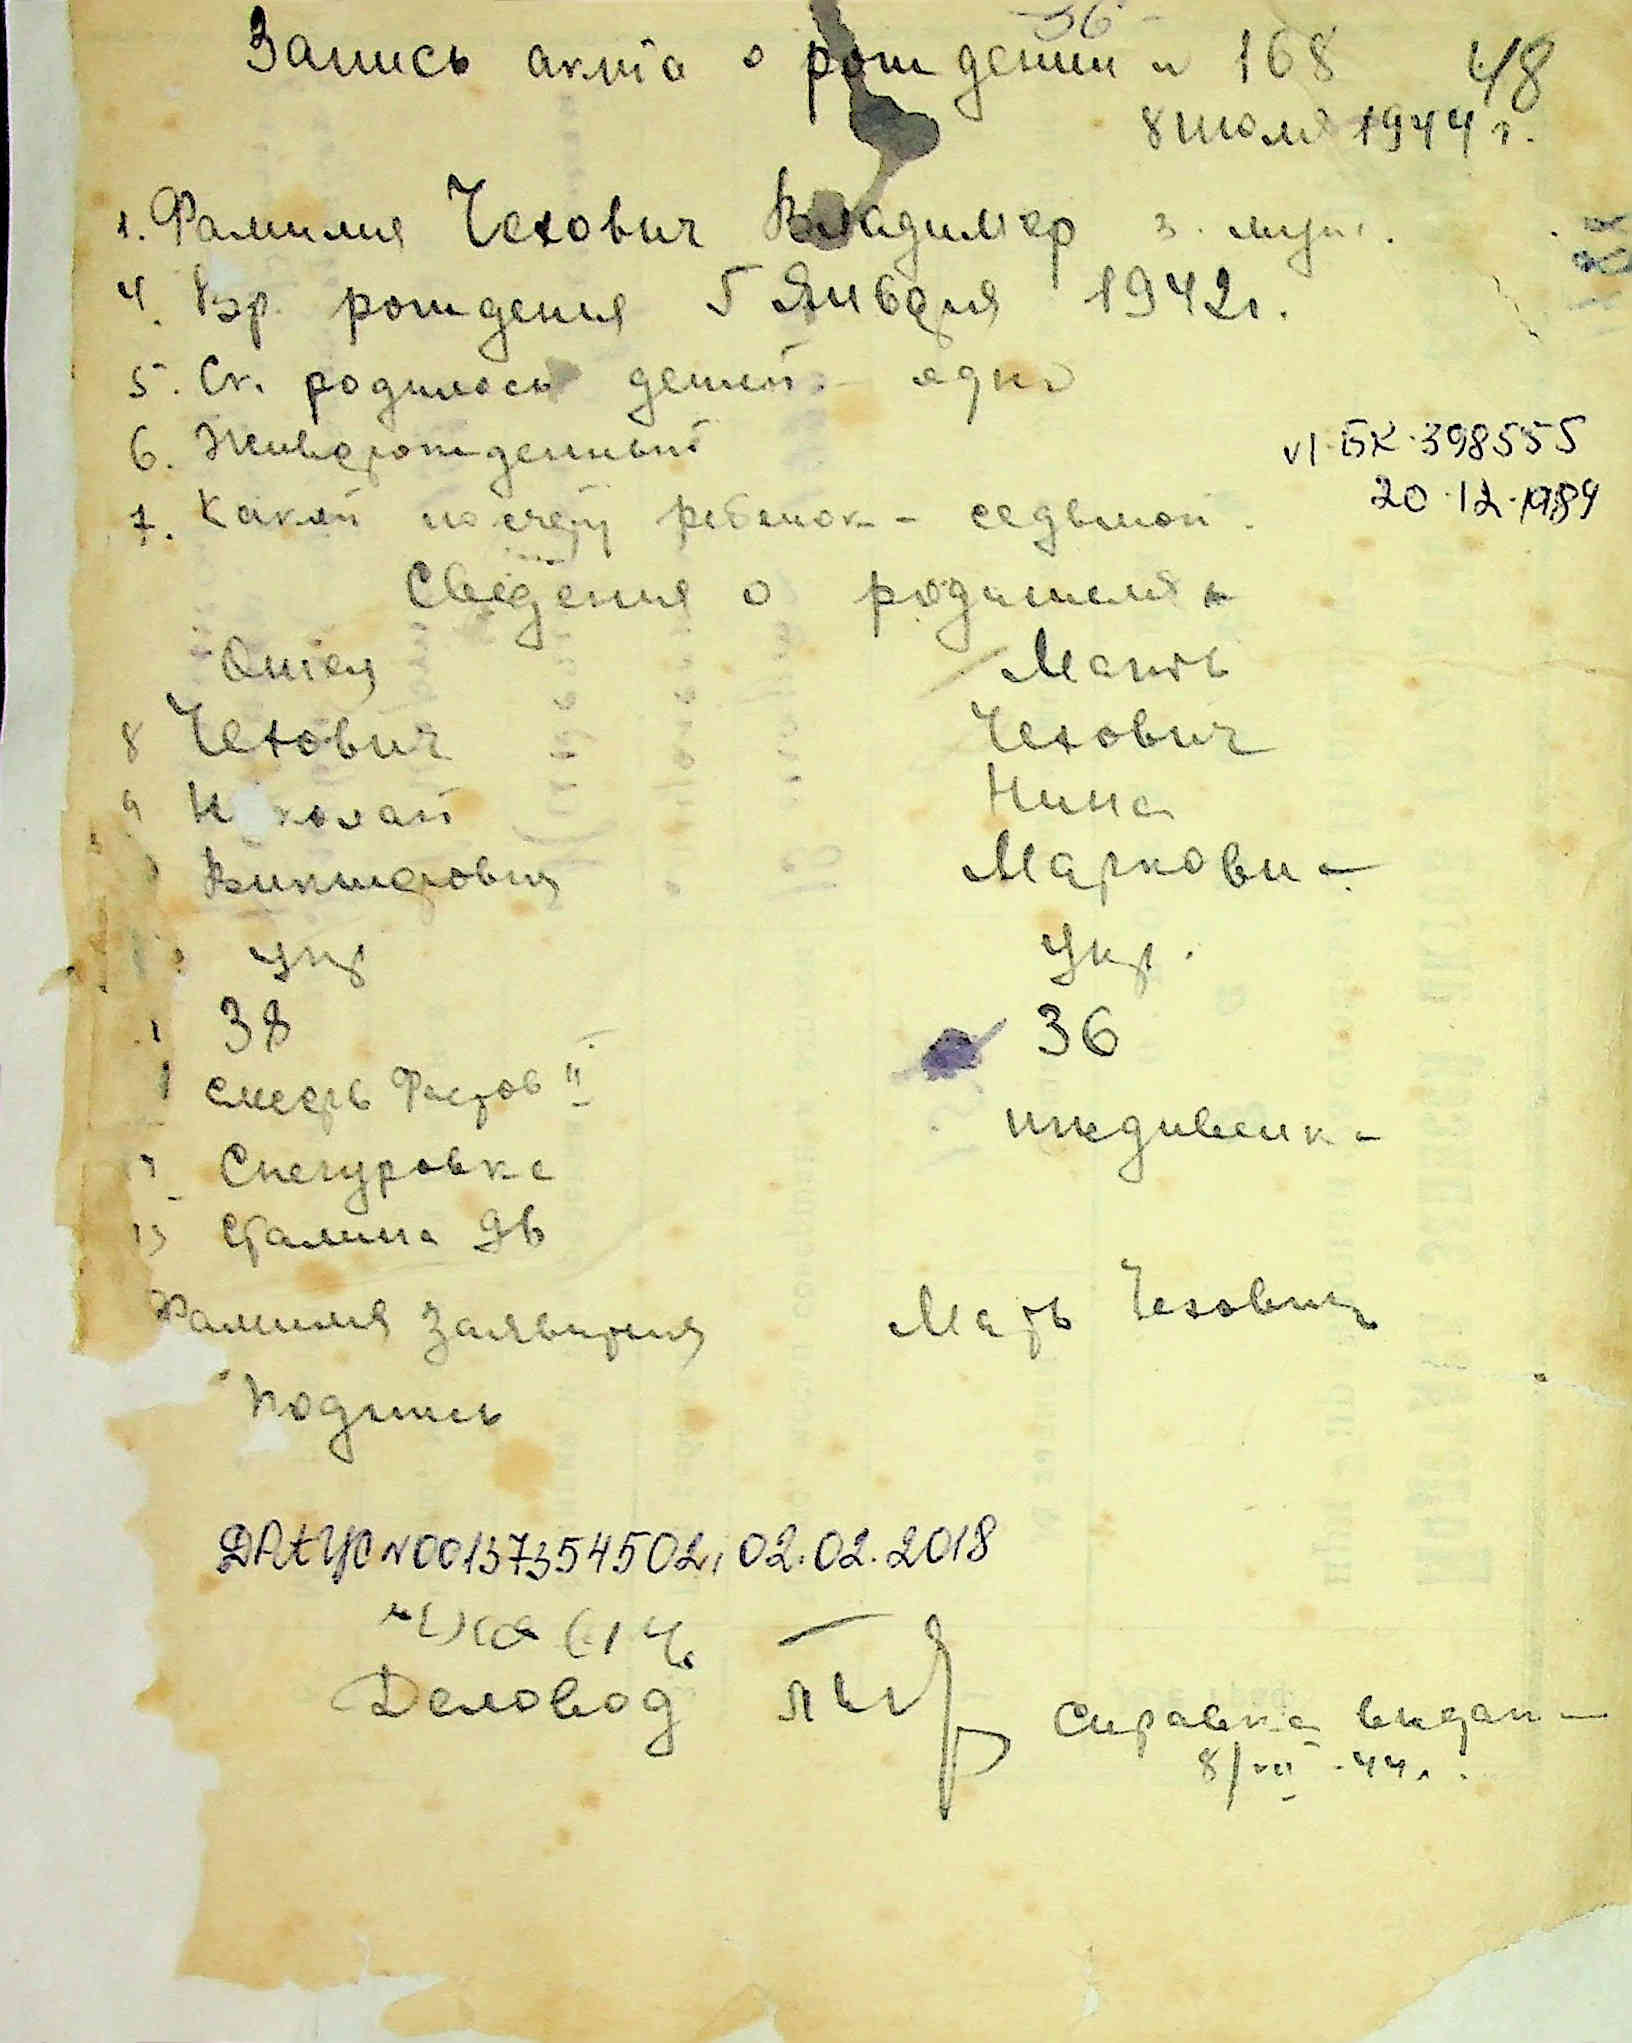 36
Запись акта о рождении N 168 48
8 июля 1944 г.
1. Фамилия Чехович Владимер 3. муж.
4. Вр. рождения 5 Января 1942 г.
5. Ск. родилось детей - одно
6. Живорожденный
VI-БК 398555
7. Какой по счету ребенок - седьмой.
20.12.1989
Сведения о родителях
Отец Мать
8 Чехович Чехович
9 Николай Нина
Маркови-
Укр Укр.
38 36
иждивенка
Снегуровка
Сталина
Фамилия Заявителя Мать Чехович
Подпись
ДРАЦС N00137354502, 02.02.2018
Деловод
Справка выдан-
8/VII-44 г.